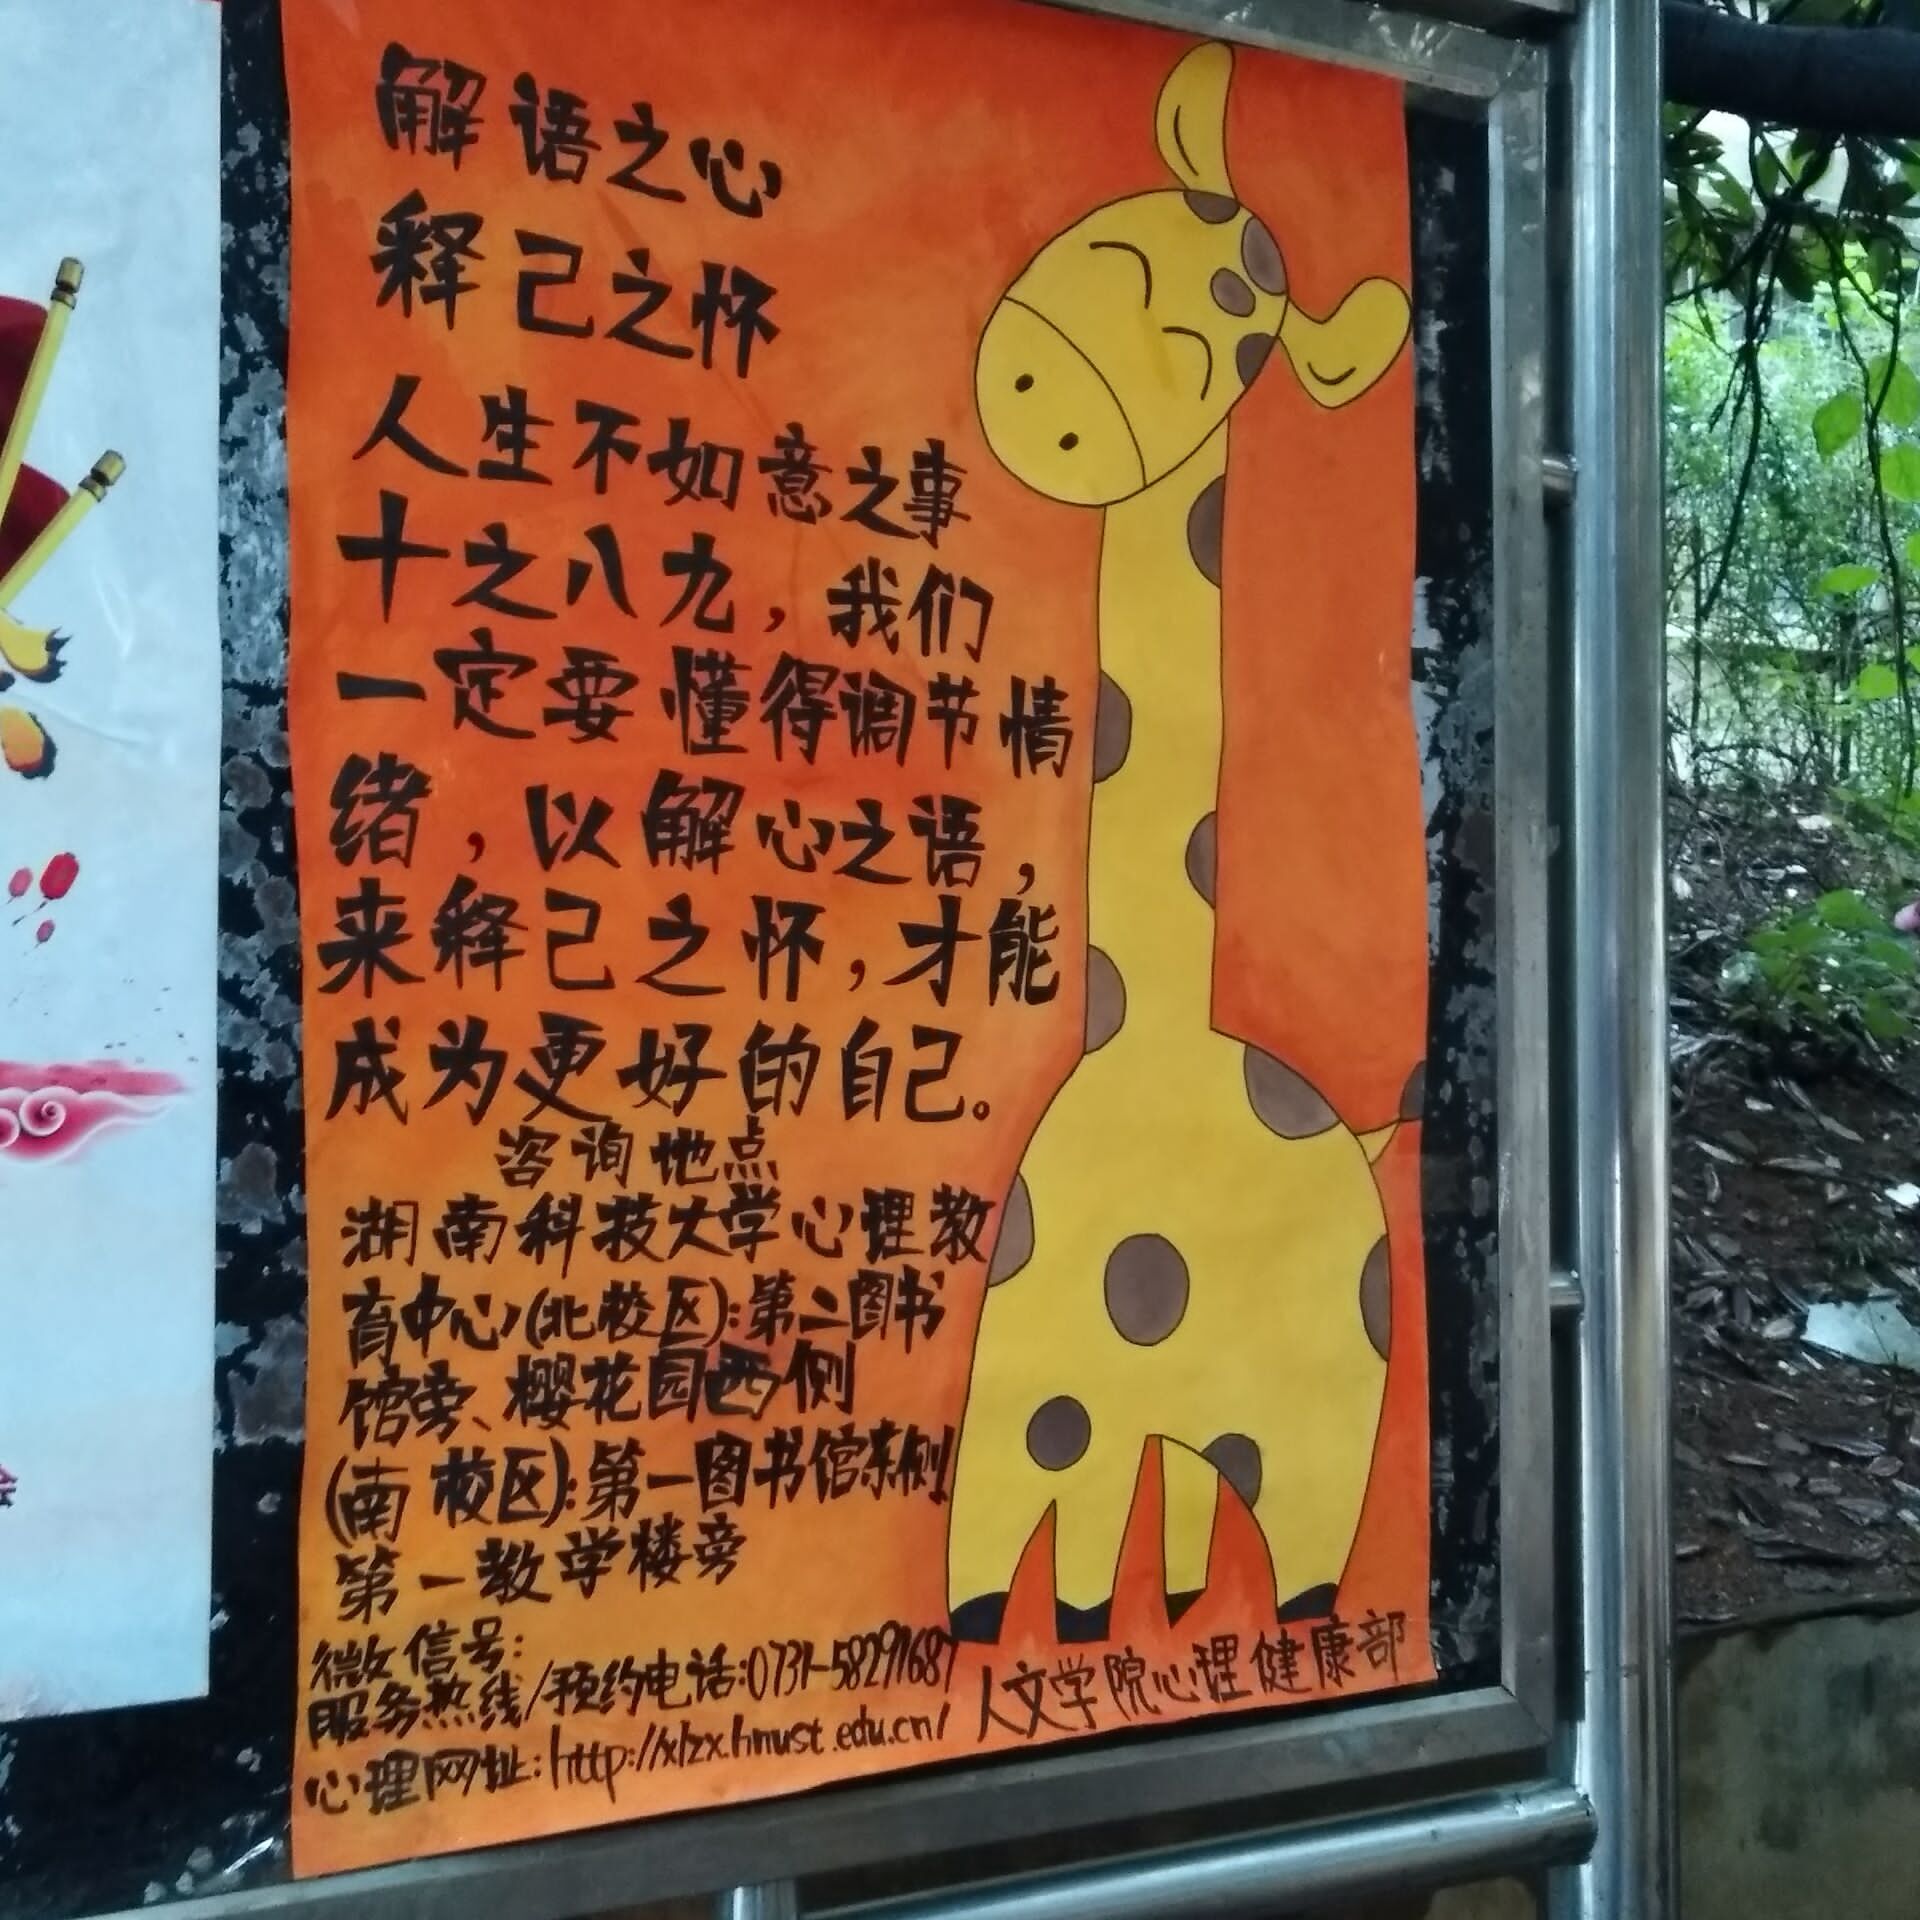 解语之心
释己之怀
人生不如意之事
十之八九，我们
一定要懂得调节情
绪，以解心之语，
来释己之怀，才能
成为更好的自己。
咨询地点
湖南科技大学心理教
育中心(北校区):第二图书
馆旁、樱花园西侧
(南校区):第一图书馆东侧
第一教学楼旁
微信号:
服务热线/预约电话:0731-58291687
心理网址:http://xlzx.hnust.edu.cn/
人文学院心理健康部